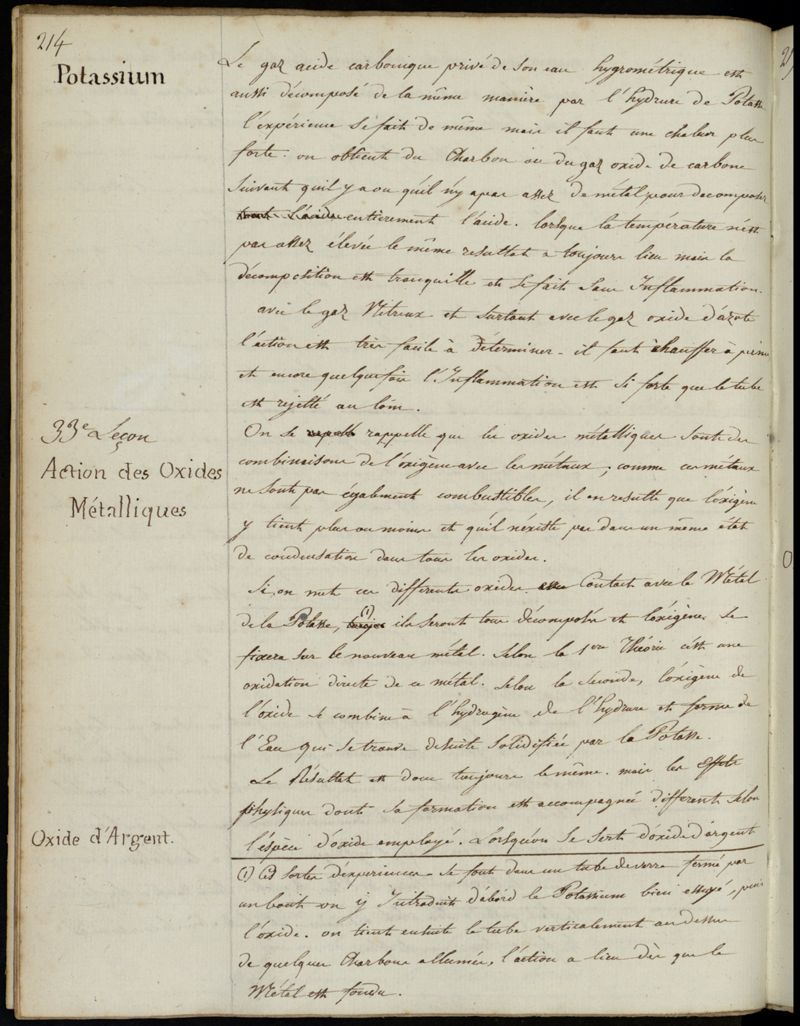 214
Potassium
Le gaz acide carbonique privé de son eau hygrométrique est
aussi décomposé de la même manière par l'hydrure de Potasse
l'expérience se fait de même mais il faut une chaleur plus
forte. on obtient du Charbon ou du gaz oxide de carbone
suivant qu'il y a ou qu'il n'y a pas assez de métal pour decomposer
tout l'acide entierement l'acide. lorsque la température n'est
pas assez élevée le même resultat a toujours lieu mais la
décomposition est tranquille et se fait sans Inflammation.
avec le gaz Nitreux et surtout avec le gaz oxide d'azote
l'action est très facile à déterminer. il faut chauffer à peine
et encore quelquefois l'Inflammation est si forte que le tube
est rejetté au loin.
33e Leçon
Action des Oxides
Métalliques
On se rappelle que les oxides métalliques sont des
combinaisons de l'oxigène avec les métaux ; comme ces métaux
ne sont pas également combustibles, il en resulte que l'oxigène
y tient plus ou moins et qu'il n'existe pas dans un même état
de condensation dans tous les oxides.
Si on met ces differents oxides en Contact avec le Métal
de la Potasse, (1) ils seront tous décomposés et l'oxigène se
fixera sur le nouveau métal. selon la 1ere Théorie c'est une
oxidation directe de ce métal. selon la seconde, l'oxigène de
l'oxide se combine à l'hydrogène de l'hydrure et forme de
l'Eau qui se trouve desuite solidifiée par la Potasse.
Le Résultat est donc toujours le même. mais les effets
physiques dont sa formation est accompagnée different selon
l'éspèce d'oxide employé. Lorsqu'on se sert d'oxide d'argent
Oxide d'Argent.
(1) Ces sortes d'experiences se font dans un tube de verre fermé par
un bout on y Introduit d'abord le Potassium bien essuyé, puis
l'oxide. on tient ensuite le tube verticalement au dessus
de quelques Charbons allumés, l'action a lieu dès que le
Métal est fondu.